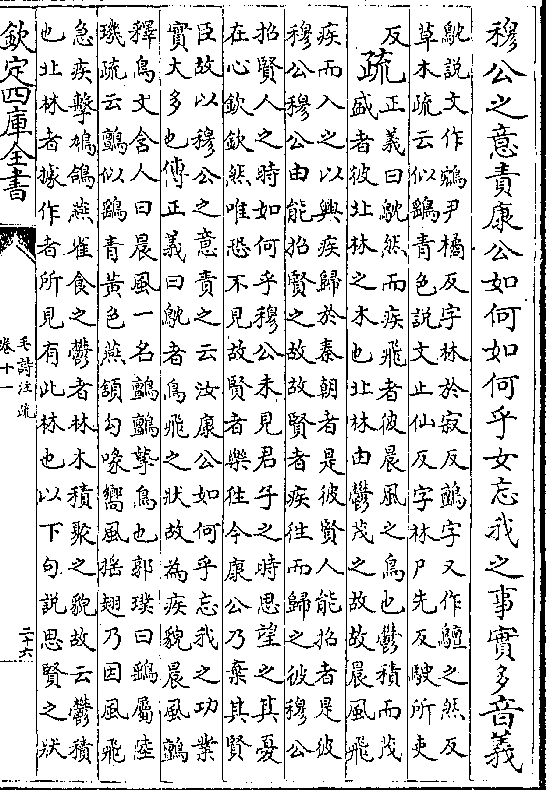 穆公之意責康公如何如何乎女忘我之事實多音義
鴥説文作鴪尹橘反字林於寂反鸇字又作驙之然反
草木疏云似鷂青色説文止仙反字林尸先反駛所吏
反
疏
正義曰鴥然而疾飛者彼晨風之鳥也鬱積而茂
盛者彼北林之木也北林由鬱茂之故故晨風飛
疾而入之以興疾歸於秦朝者是彼賢人能招者是彼
穆公穆公由能招賢之故故賢者疾往而歸之彼穆公
招賢人之時如何乎穆公未見君子之時思望之其憂
在心欽欽然唯恐不見故賢者樂往今康公乃棄其賢
臣故以穆公之意責之云汝康公如何乎忘我之功業
實大多也傳正義曰鴥者鳥飛之狀故為疾貌晨風鸇
釋鳥文舍人曰晨風一名鸇鸇摯鳥也郭璞曰鷂屬陸
璣疏云鸇似鷂青黃色燕頷勾喙嚮風搖翅乃因風飛
急疾擊鳩鴿燕雀食之鬱者林木積聚之貌故云鬱積
也北林者據作者所見有此林也以下句説思賢之狀
欽定四庫全書
毛詩注疏
卷十一
二十六